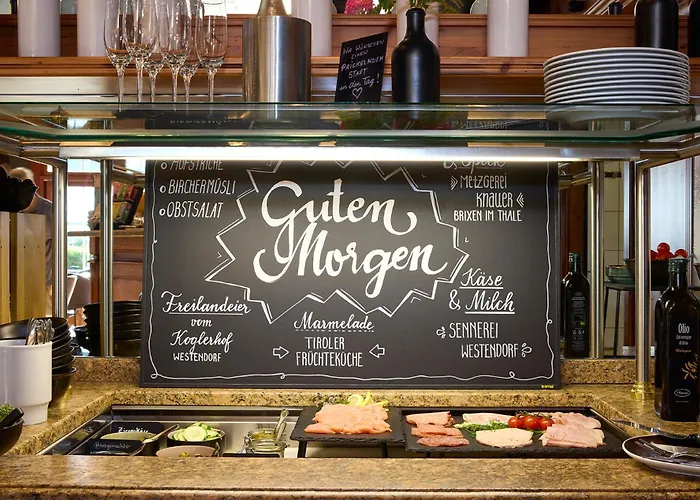 Wir wünschen
einen
prickelnden
Start
in den Tag!
Aufstriche
Birchermüsli
Obstsalat
Guten
Morgen
& Speck
Metzgerei
Knauer
Brixen im Thale
Freilandeier
vom
Koglerhof
Westendorf
Marmelade
Tiroler
Früchteküche
Käse
& Milch
Sennerei
Westendorf
Olio